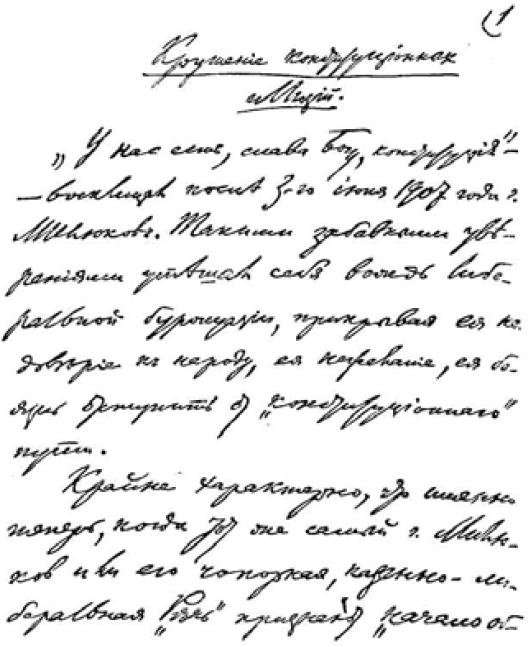 1
Крушеніе конституціонных
иллюзій.
„У нас есть, слава Богу, конституція“ –
– воскликнул после 3-го іюня 1907 года г.
Милюков. Такими забавными увѣ-
реніями утѣшал себя вождь либе-
ральной буржуазіи, прикрывая ея не-
довѣріе к народу, ея нежеланіе, ея бо-
язнь отступить от „конституціоннаго“
пути.
Крайне характерно, что именно
теперь, когда тот же самый г. Милю-
ков или его чопорная, казенно-ли-
беральная „Рѣчь“ признает „начало об-